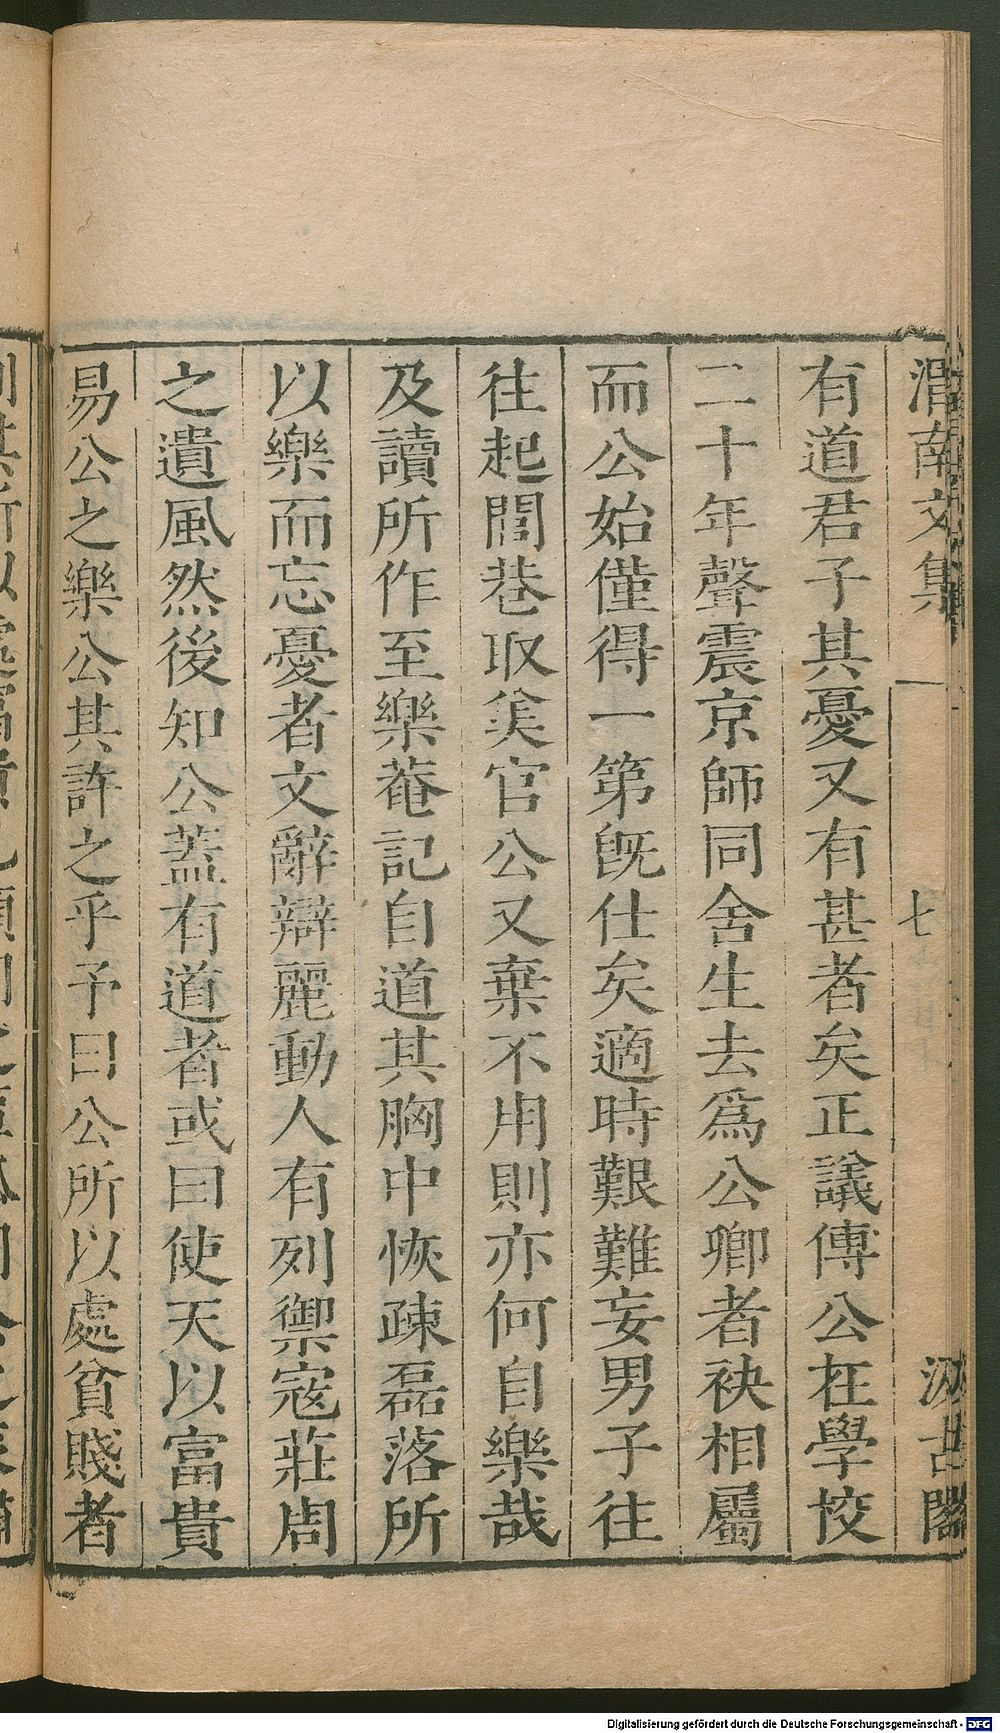 渭南文集
七
汲古閣
有道君子其憂又有甚者矣正議傅公在學校
二十年聲震京師同舍生去爲公卿者袂相屬
而公始僅得一第旣仕矣適時艱難妄男子往
往起閭巷取美官公又棄不用則亦何自樂哉
及讀所作至樂菴記自道其胸中恢疎磊落所
以樂而忘憂者文辭辯麗動人有列禦寇莊周
之遺風然後知公蓋有道者或曰使天以富貴
易公之樂公其許之乎予曰公所以處貧賤者
Digitalisierung gefördert durch die Deutsche Forschungsgemeinschaft - DFG